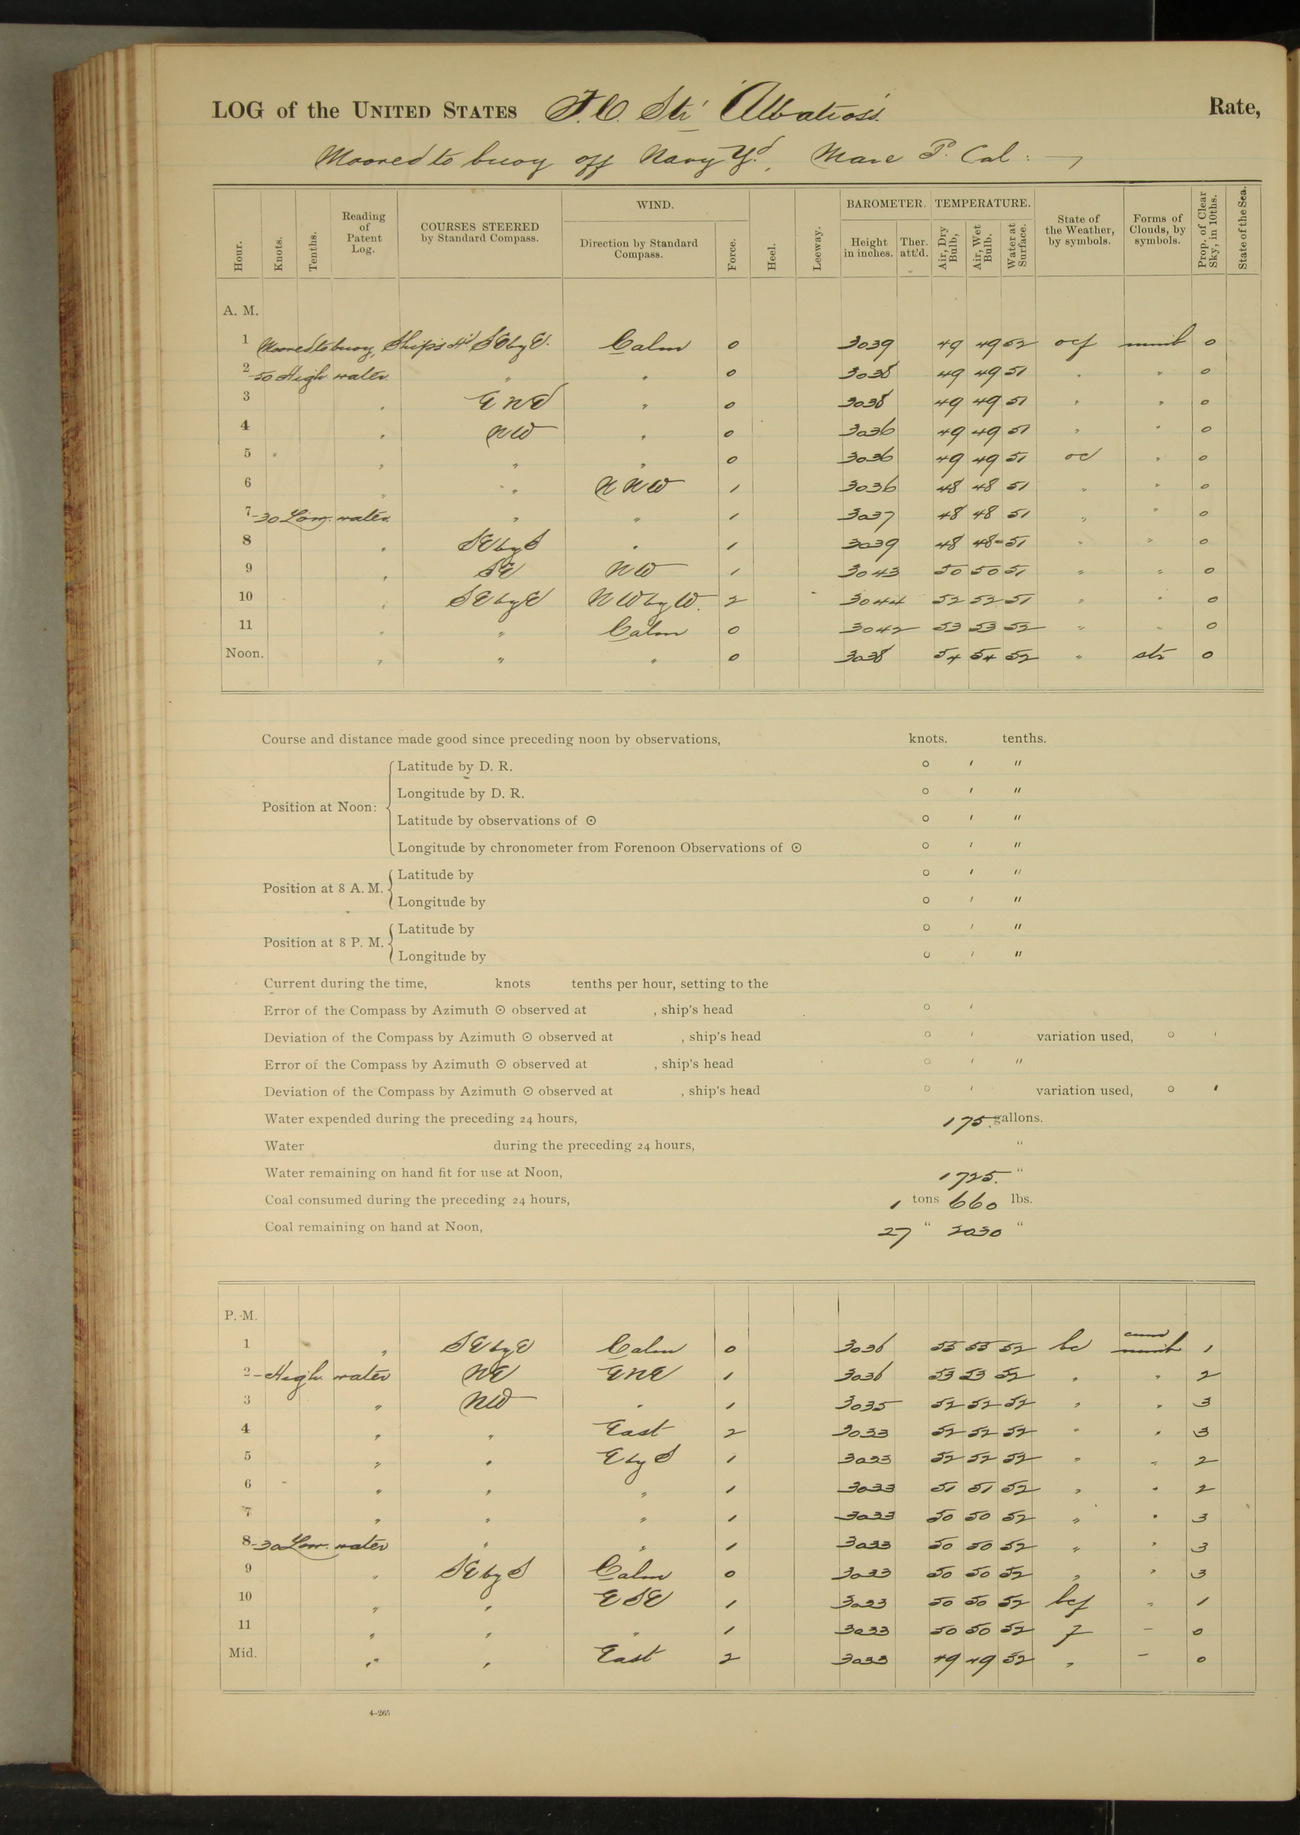 LOG of the UNITED STATES F. C. Str "Albatross" Rate,
Moored to buoy off Navy Yd, Mare I. Cal:
Hour. Knots. Tenths. Reading of Patent Log. COURSES STEERED by Standard Compass. WIND. Direction by Standard Compass. Force. Heel. Leeway. BAROMETER. Height in inches. Ther. att'd. TEMPERATURE. Air, Dry Bulb, Air, Wet Bulb. Water at Surface. State of the Weather, by symbols. Forms of Clouds, by symbols. Prop. of Clear Sky, in 10ths. State of the Sea.
A. M.
1 Moored to buoy, Ship's Hd SE by E. Calm 0 3039 49 49 52 ocf nimb 0
2-50 High water " " 0 3038 49 49 51 " " 0
3 " ENE " 0 3038 49 49 51 " " 0
4 " NW " 0 3036 49 49 51 " " 0
5 " " " 0 3036 49 49 51 oc " 0
6 " " NNW 1 3036 48 48 51 " " 0
7-30 Low water " " 1 3037 48 48 51 " " 0
8 " SE by S " 1 3039 48 48 51 " " 0
9 " SE NW 1 3043 50 50 51 " " 0
10 " SE by E NW by W. 2 3044 52 52 51 " " 0
11 " " Calm 0 3042 53 53 52 " " 0
Noon. " " " 0 3038 54 54 52 " str 0
Course and distance made good since preceding noon by observations, knots. tenths.
Position at Noon: Latitude by D. R. ° ′ ″
Longitude by D. R. ° ′ ″
Latitude by observations of ⊙ ° ′ ″
Longitude by chronometer from Forenoon Observations of ⊙ ° ′ ″
Position at 8 A. M. Latitude by ° ′ ″
Longitude by ° ′ ″
Position at 8 P. M. Latitude by ° ′ ″
Longitude by ° ′ ″
Current during the time, knots tenths per hour, setting to the
Error of the Compass by Azimuth ⊙ observed at , ship's head ° ′
Deviation of the Compass by Azimuth ⊙ observed at , ship's head ° ′ variation used, ° ′
Error of the Compass by Azimuth ⊙ observed at , ship's head ° ′ ″
Deviation of the Compass by Azimuth ⊙ observed at , ship's head ° ′ variation used, ° ′
Water expended during the preceding 24 hours, 175. gallons.
Water during the preceding 24 hours, "
Water remaining on hand fit for use at Noon, 1725. "
Coal consumed during the preceding 24 hours, 1 tons 660 lbs.
Coal remaining on hand at Noon, 27 " 2030 "
P. M.
1 " SE by E Calm 0 3036 53 53 52 bc cum nimb 1
2-High water NE ENE 1 3036 53 53 52 " " 2
3 " NW " 1 3035 52 52 52 " " 3
4 " " East 2 3033 52 52 52 " " 3
5 " " E by S 1 3033 52 52 52 " " 2
6 " " " 1 3033 51 51 52 " " 2
7 " " " 1 3033 50 50 52 " " 3
8-30 Low water " " 1 3033 50 50 52 " " 3
9 " SE by S Calm 0 3033 50 50 52 " " 3
10 " " ESE 1 3033 50 50 52 bcf " 1
11 " " " 1 3033 50 50 52 f - 0
Mid. " " East 2 3033 49 49 52 " - 0
4-265